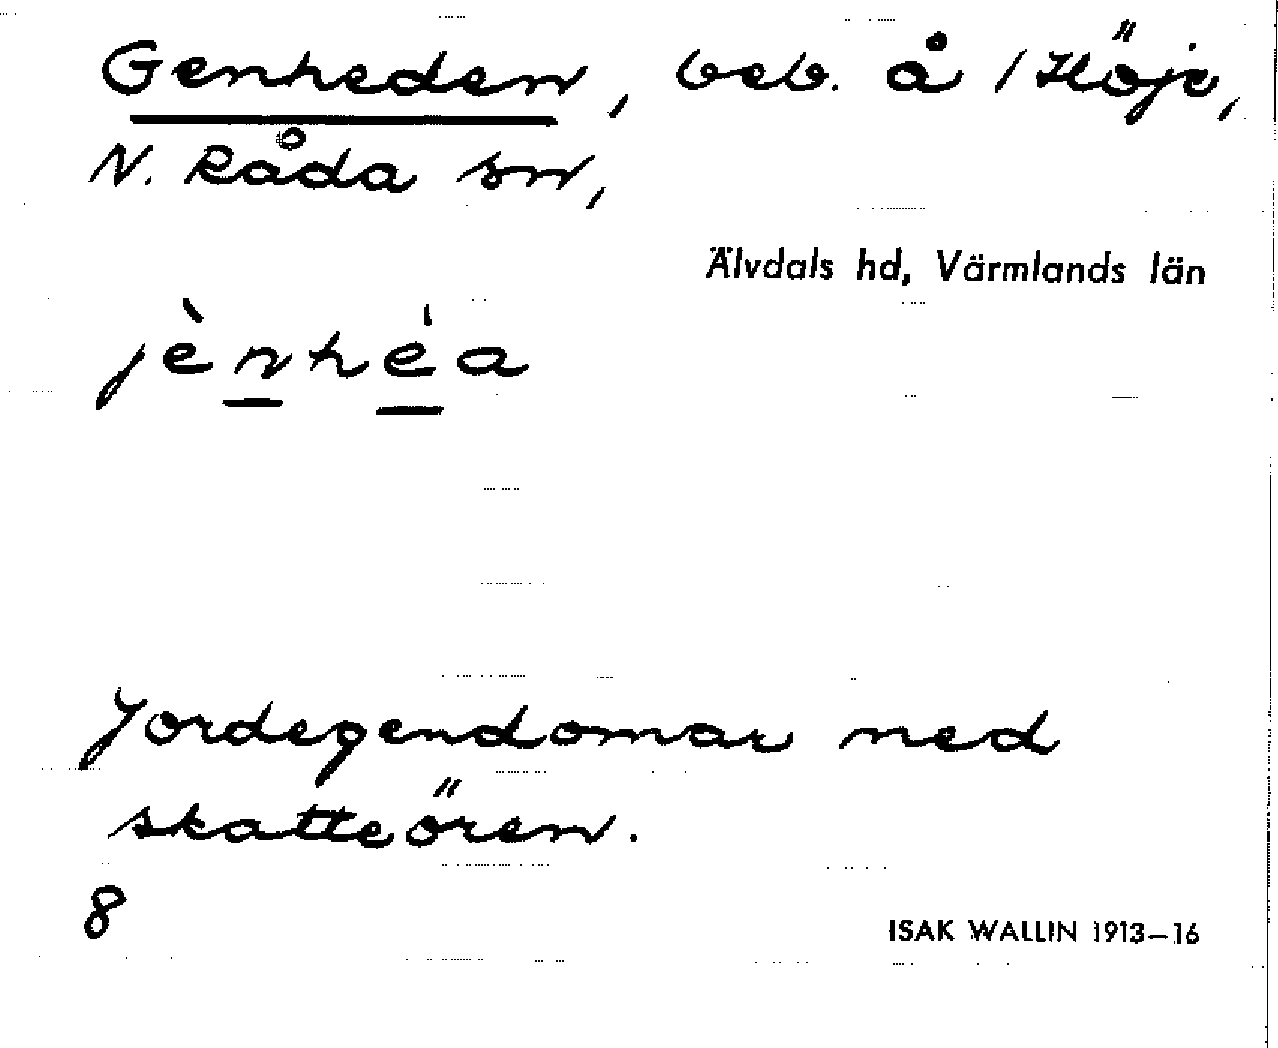 Genheden, beb. å 1 Höje,
N. Råda sn,
Älvdals hd, Värmlands län
jènhéa
Jordegendomar med
skatteören.
8
ISAK WALLIN 1913–16